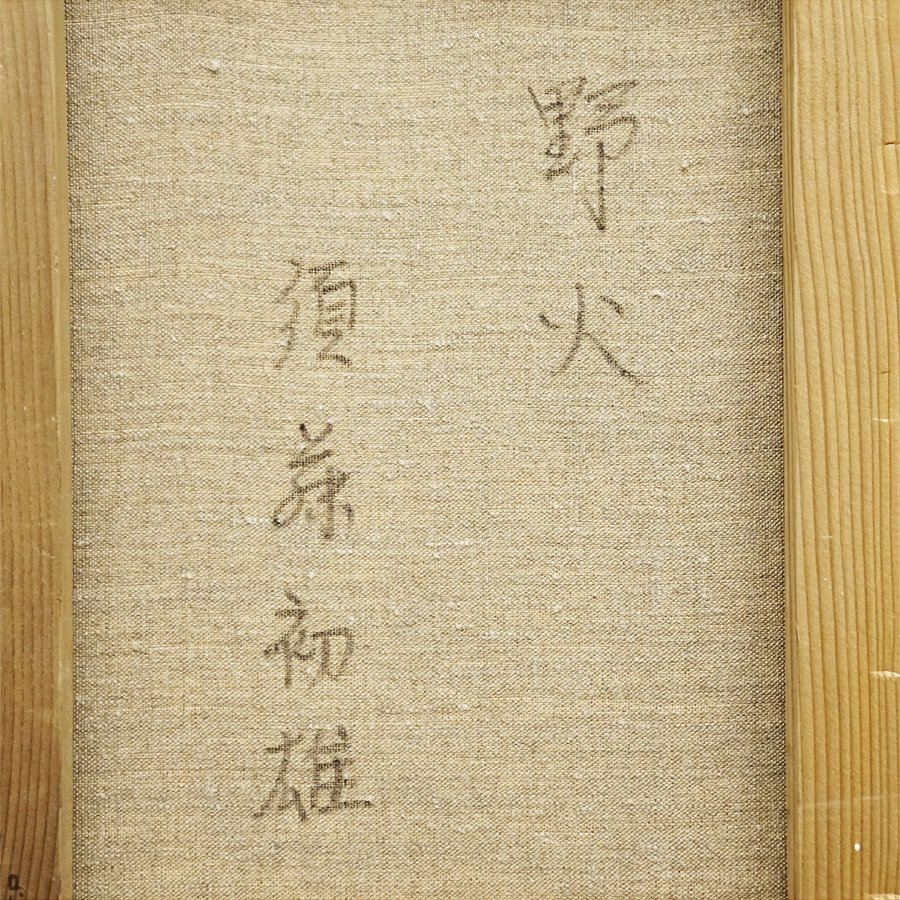 野火
須藤初雄